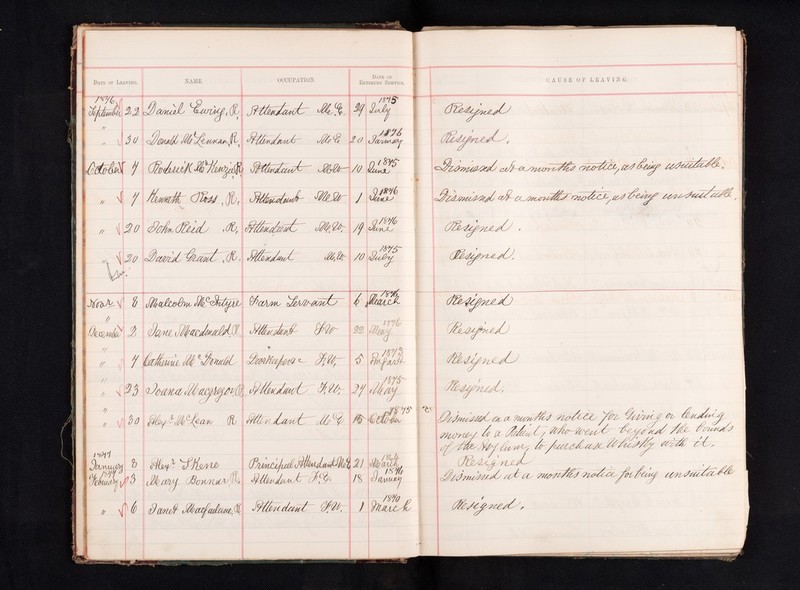 DATE OF LEAVING. NAME OCCUPATION. DATE OF ENTERING SERVICE. CAUSE OF LEAVING.
1876 September 22 Daniel Ewing, R. Attendant M.E. 29 July 1875 Resigned
" 30 Donald McLennan, R. Attendant M.E. 20 January 1876 Resigned.
October 4 Roderick McKenzie R. Attendant M.W. 10 June 1875 Dismissed at a months notice, as being unsuitable.
" 4 Kenneth Ross, R. Attendant M.W. 1 June 1876 Dismissed at a months notice, as being unsuitable.
" 20 John Reid, R. Attendant M.W. 19 June 1876 Resigned.
" 20 David Grant, R. Attendant M.W. 10 July 1875 Resigned.
Novr. 8 Malcolm McIntyre Farm Servant 6 March 1876 Resigned
December 2 Jane Macdonald R. Attendant F.W. 22 May 1876 Resigned
" 4 Catherine McDonald Doorkeeper F.W. 5 Resigned
" 23 Joana Macgregor R. Attendant F.W. 24 May 1875 Resigned.
" 30 Alexr. McLean R Attendant M.E. 15 October 1875 Dismissed on a months notice for Giving or lending
money to a Patient, who went beyond the bounds
of the Asylum, to purchase Whisky with it.
1877 January 8 Alexr. Skene Principal Attendant M.E. 21 March Resigned
1877 February 3 Mary Bonnar R. Attendant F.E. 18 January 1876 Dismissed at a months notice for being unsuitable
" 6 Janet Macfadane, R. Attendant F.W. 1 March Resigned.